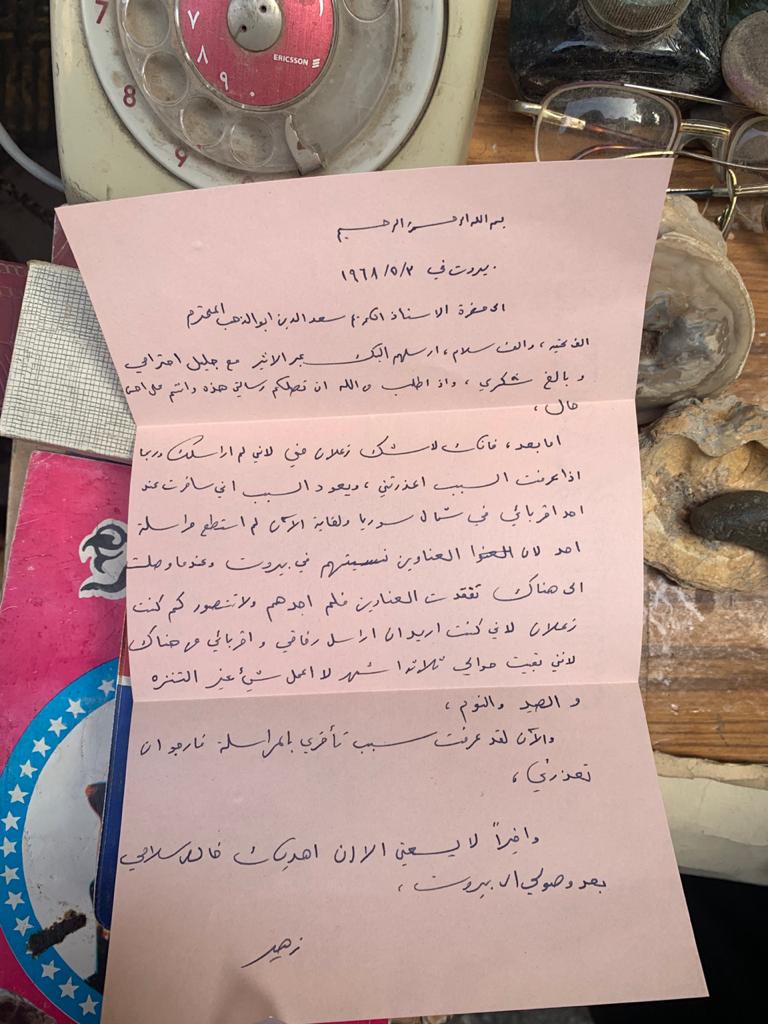 7
8
9
١
٧
٨
٩
٠
ERICSSON
بسم الله الرحمن الرحيم
بيروت في ١٩٦٨/٥/٣
الى حضرة الاستاذ الكريم سعد الدين ابو الذهب المحترم
الف تحية، والف سلام، ارسلهم اليك عبر الاثير مع جليل احترامي
و بالغ شكري، واذ اطلب من الله ان تصلكم رسالتي هذه وانتم على احسن
حال،
اما بعد، فانك لا شك زعلان مني لاني لم اراسلك وربما
اذا عرفت السبب اعذرتني، ويعود السبب اني سافرت عند
احد اقربائي في شمال سوريا ولغاية الآن لم استطع مراسلة
احد لان العناوين نسيتهم في بيروت وعندما وصلت
الى هناك تفقدت العناوين فلم اجدهم ولا تتصور كم كنت
زعلان لاني كنت اريد ان اراسل رفاقي و اقربائي من هناك
لانني بقيت حوالي ثلاثة اشهر لا اعمل شيئ غير التنزه
و الصيد والنوم،
والآن لقد عرفت سبب تأخري بالمراسلة فارجو ان
تعذرني،
واخيراً لا يسعني الا ان اهديك خالص سلامي
بعد وصولي الى بيروت،
زهير